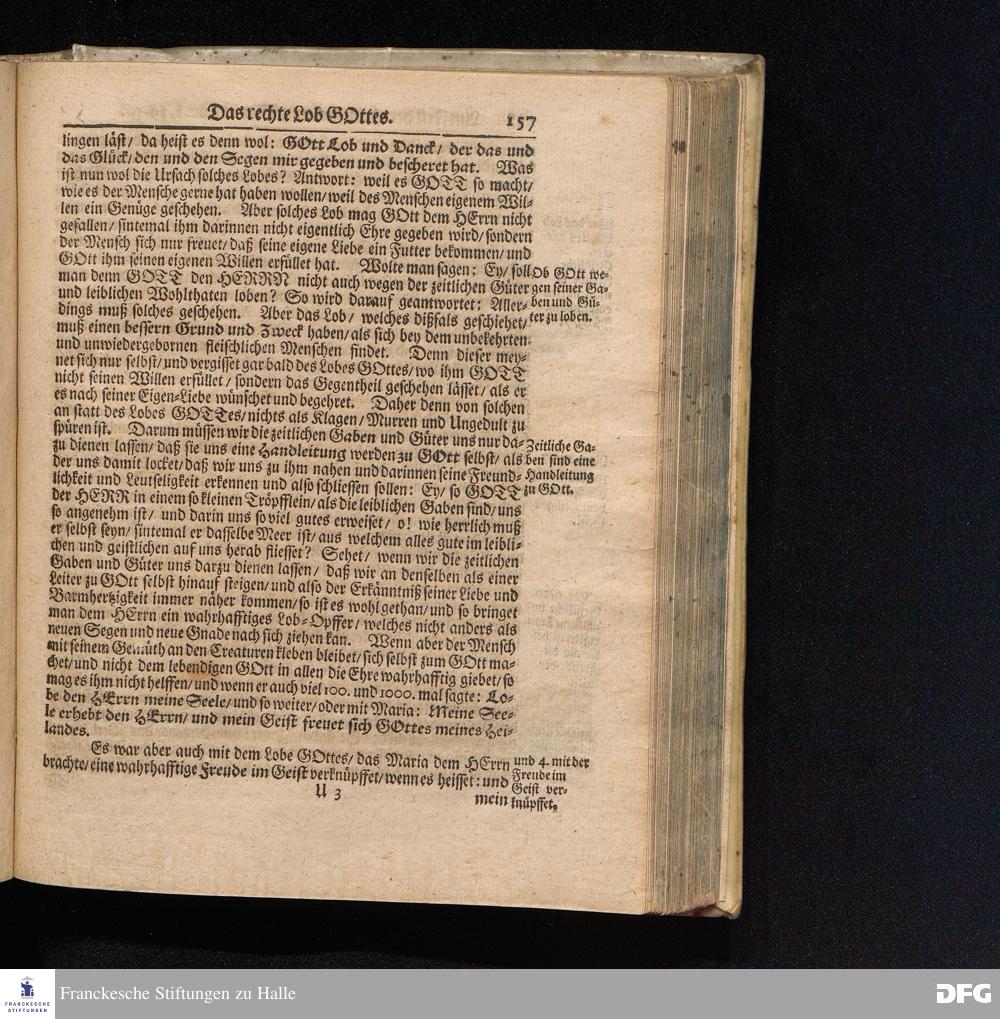 Das rechte Lob GOttes. 157
lingen läst/ da heist es denn wol: GOtt Lob und Danck/ der das und
das Glück/ den und den Segen mir gegeben und bescheret hat. Was
ist nun wol die Ursach solches Lobes? Antwort: weil es GOTT so macht/
wie es der Mensche gerne hat haben wollen/ weil des Menschen eigenem Wil-
len ein Genüge geschehen. Aber solches Lob mag GOtt dem HErrn nicht
gefallen/ sintemal ihm darinnen nicht eigentlich Ehre gegeben wird/ sondern
der Mensch sich nur freuet/ daß seine eigene Liebe ein Futter bekommen/ und
GOtt ihm seinen eigenen Willen erfüllet hat. Wolte man sagen: Ey/ soll
man denn GOTT den HERRN nicht auch wegen der zeitlichen Güter
und leiblichen Wohlthaten loben? So wird darauf geantwortet: Aller-
dings muß solches geschehen. Aber das Lob/ welches dißfals geschiehet/
muß einen bessern Grund und Zweck haben/ als sich bey dem unbekehrten
und unwiedergebornen fleischlichen Menschen findet. Denn dieser mey-
net sich nur selbst/ und vergisset gar bald des Lobes GOttes/ wo ihm GOTT
nicht seinen Willen erfüllet/ sondern das Gegentheil geschehen lässet/ als er
es nach seiner Eigen-Liebe wünschet und begehret. Daher denn von solchen
an statt des Lobes GOTTes/ nichts als Klagen/ Murren und Ungedult zu
spüren ist. Darum müssen wir die zeitlichen Gaben und Güter uns nur da-
zu dienen lassen/ daß sie uns eine Handleitung werden zu GOtt selbst/ als
der uns damit locket/ daß wir uns zu ihm nahen und darinnen seine Freund-
lichkeit und Leutseligkeit erkennen und also schliessen sollen: Ey/ so GOTT
der HERR in einem so kleinen Tröpfflein/ als die leiblichen Gaben sind/ uns
so angenehm ist/ und darin uns so viel gutes erweiset/ o! wie herrlich muß
er selbst seyn/ sintemal er dasselbe Meer ist/ aus welchem alles gute im leibli-
chen und geistlichen auf uns herab fliesset? Sehet/ wenn wir die zeitlichen
Gaben und Güter uns darzu dienen lassen/ daß wir an denselben als einer
Leiter zu GOtt selbst hinauf steigen/ und also der Erkänntniß seiner Liebe und
Barmhertzigkeit immer näher kommen/ so ist es wohl gethan/ und so bringet
man dem HErrn ein wahrhafftiges Lob-Opffer/ welches nicht anders als
neuen Segen und neue Gnade nach sich ziehen kan. Wenn aber der Mensch
mit seinem Gemüth an den Creaturen kleben bleibet/ sich selbst zum GOtt ma-
chet/ und nicht dem lebendigen GOtt in allen die Ehre wahrhafftig giebet/ so
mag es ihm nicht helffen/ und wenn er auch viel 100. und 1000. mal sagte: Lo-
be den HErrn meine Seele/ und so weiter/ oder mit Maria: Meine See-
le erhebt den HErrn/ und mein Geist freuet sich GOttes meines Hei-
landes.
Es war aber auch mit dem Lobe GOttes/ das Maria dem HErrn
brachte/ eine wahrhafftige Freude im Geist verknüpffet/ wenn es heisset: und
U 3 mein
Ob GOtt we-
gen seiner Ga-
ben und Gü-
ter zu loben.
Zeitliche Ga-
ben sind eine
Handleitung
zu GOtt.
und 4. mit der
Freude im
Geist ver-
knüpffet.
FRANCKESCHE
STIFTUNGEN
Franckesche Stiftungen zu Halle
DFG